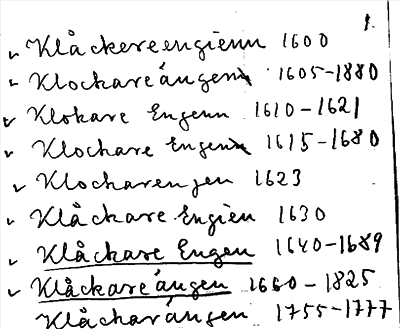 1.
Klåckereengienn 1600
Klockareängen 1605-1880
Klokare Engenn 1610-1621
Klochare Engenn 1615-1680
Klocharenjen 1623
Klåckare Engien 1630
Klåckare Engen 1640-1689
Klåckareängen 1660-1825
Klåckarängen 1755-1777